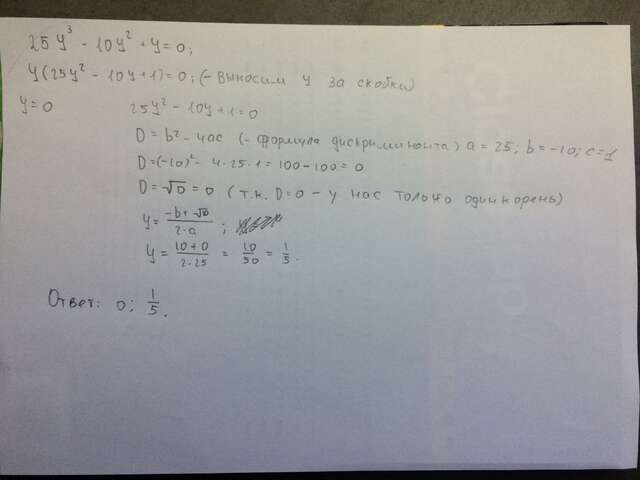 25y³ - 10y² + y = 0;
y(25y² - 10y + 1) = 0; (- выносим y за скобки)
y = 0 25y² - 10y + 1 = 0
D = b² - 4ac (- формула дискриминонта) a = 25; b = -10; c = 1
D = (-10)² - 4·25·1 = 100 - 100 = 0
D = √0 = 0 (т.к. D = 0 - у нас только один корень)
y = (-b + √D)/(2·a) ;
y = (10 + 0)/(2·25) = 10/50 = 1/5.
Ответ: 0; 1/5.